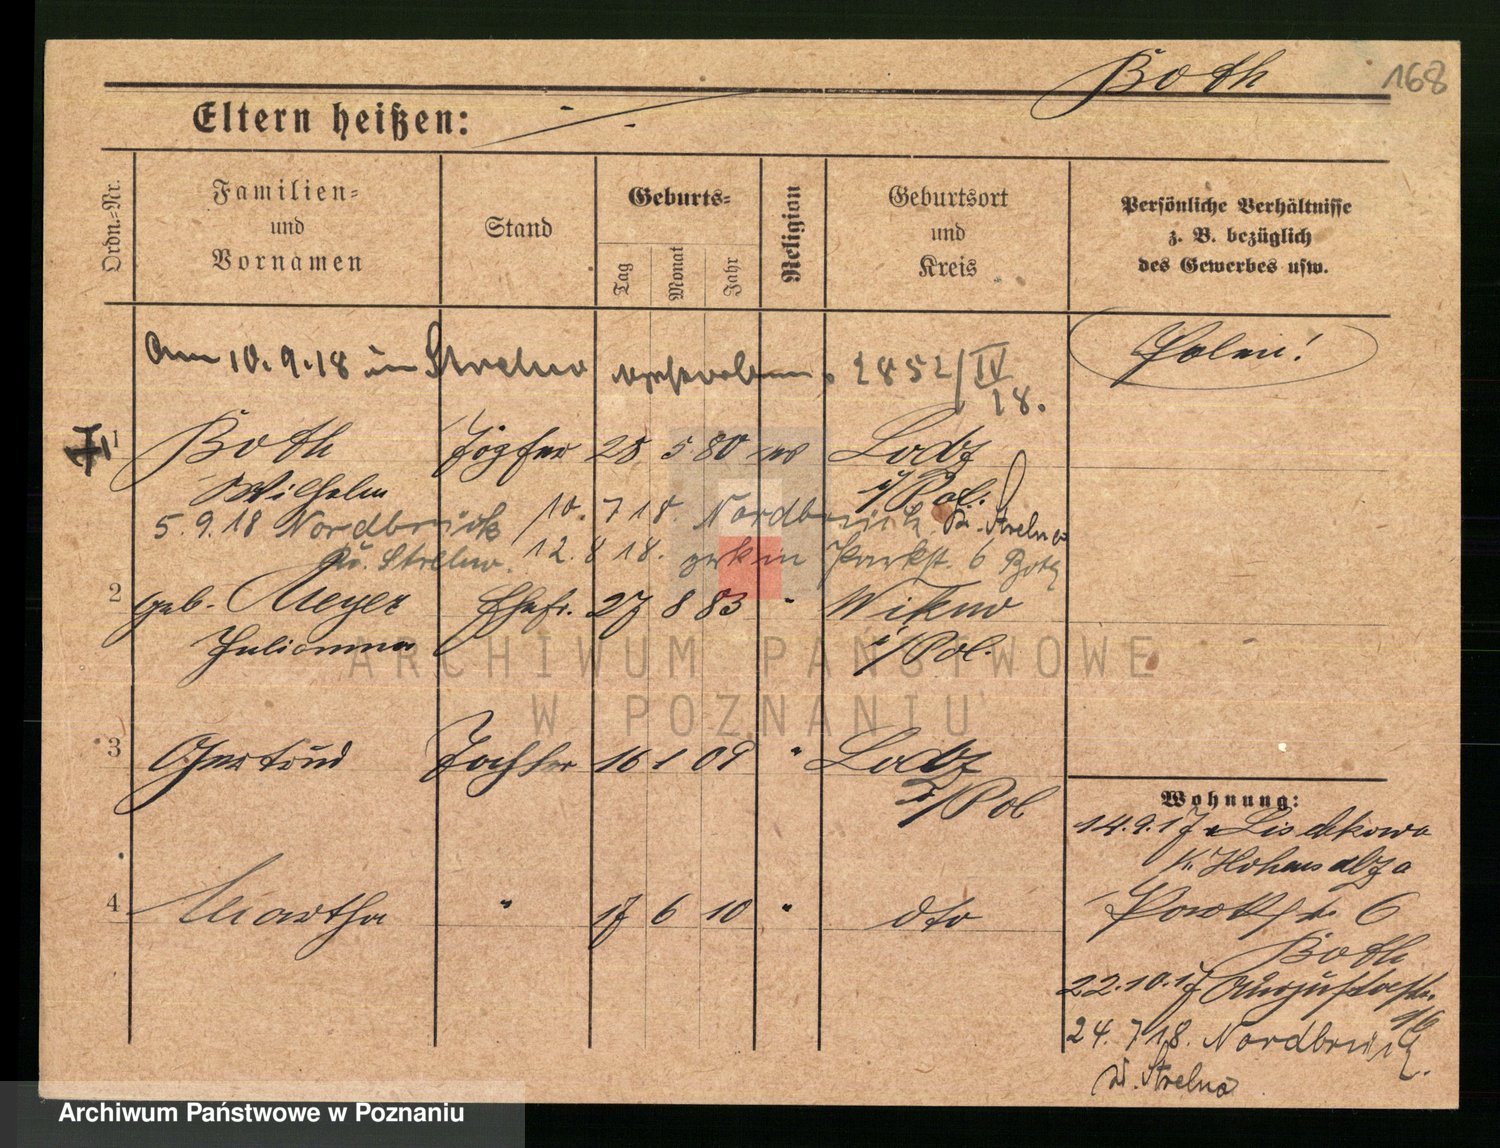 Both
168
Eltern heißen:
Ordn.-Nr.
Familien-
und
Vornamen
Stand
Geburts-
Tag
Monat
Jahr
Religion
Geburtsort
und
Kreis
Persönliche Verhältnisse
z. B. bezüglich
des Gewerbes usw.
Am 10.9.18 in Strelno verstorben. 2852/IV
18.
Polen!
1 Both 28 5 80 ev Lodz
Wilhelm i/Pol.
5.9.18 Nordbruch 10. 7 18. Nordbruch Kr. Strelno
Kr. Strelno. 12. 8 18. zurk in Parkst. 6 Both
2 geb. Meyer Ehefr. 27 8 83 " Wikno
Julianna i/Pol.
3 Gertrud Tochter 16 1 09 " Lodz
i/Pol
4 Martha " 17 6 10 " dto
Wohnung:
14.9.17 v Lisdkowo
K. Hohensalza
Parkstr. 6
Both
22.10.17 Augustastr.
16
24. 7 18. Nordbruch
Kr. Strelno
ARCHIWUM PAŃSTWOWE
W POZNANIU
Archiwum Państwowe w Poznaniu